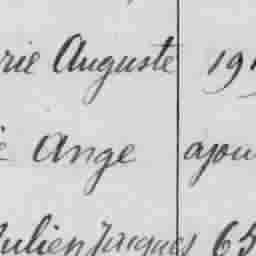 rie Auguste 191
e Ange ajou
Julien Jacques 65